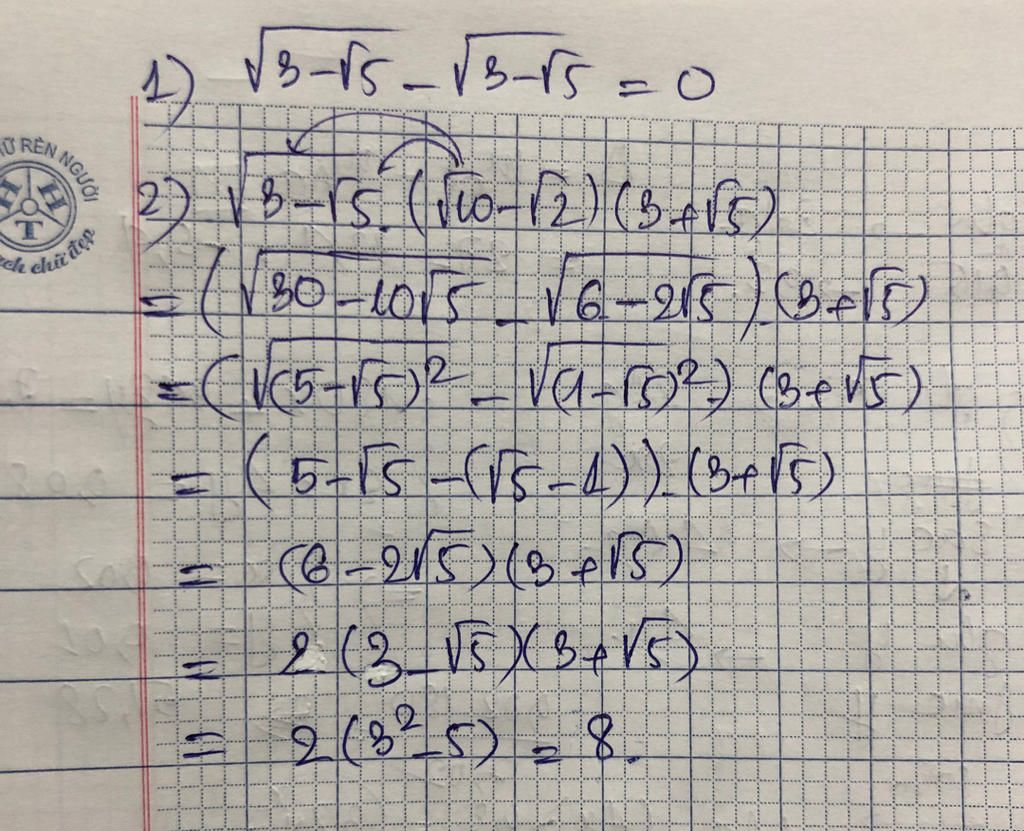 1) √(3-√5) - √(3-√5) = 0
2) √(3-√5).(√10-√2)(3+√5)
= (√(30-10√5) - √(6-2√5)).(3+√5)
= (√((5-√5)²) - √((1-√5)²)) (3+√5)
= (5-√5-(√5-1)).(3+√5)
= (6-2√5)(3+√5)
= 2(3-√5)(3+√5)
= 2(3²-5) = 8.
RÈN NGƯỜI
H H
T
chữ đẹp